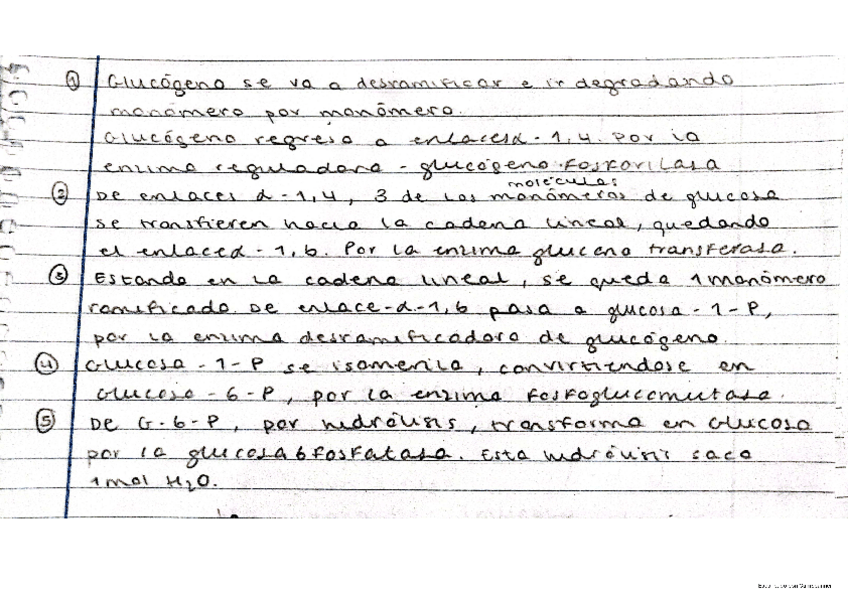 ① Glucógeno se va a desramificar e ir degradando
monómero por monómero.
Glucógeno regresa a enlaces α-1,4. Por la
enzima reguladora - glucógeno fosforilasa
moléculas
② De enlaces α-1,4, 3 de los monómeros de glucosa
se transfieren hacia la cadena lineal, quedando
el enlace α-1,6. Por la enzima glucano transferasa.
③ Estando en la cadena lineal, se queda 1 monómero
ramificado. De enlace-α-1,6 pasa a glucosa-1-P,
por la enzima desramificadora de glucógeno.
④ Glucosa-1-P se isomeriza, convirtiendose en
Glucosa-6-P, por la enzima fosfoglucomutasa.
⑤ De G-6-P, por hidrólisis, transforma en Glucosa
por la glucosa 6 fosfatasa. Esta hidrólisis saca
1 mol H₂O.